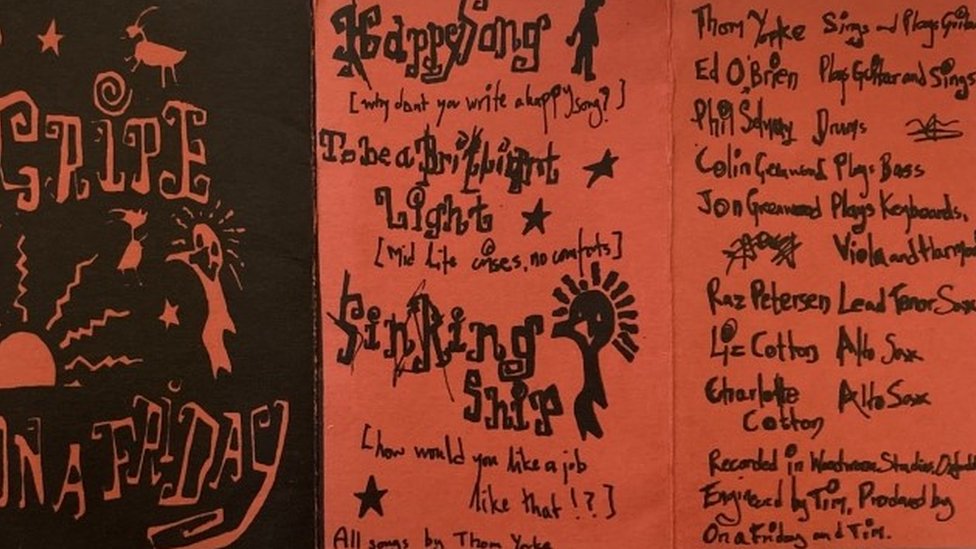 GRIPE
ON A FRIDAY
Happy Song
[why dont you write a happy song?]
To be a Brilliant
Light
[Mid life crises, no comforts]
Sinking
Ship
[how would you like a job
like that!?]
All songs by Thom Yorke
Thom Yorke Sings and Plays Guita
Ed O'Brien Plays Guitar and Sings
Phil Selway Drums
Colin Greenwood Plays Bass
Jon Greenwood Plays Keyboards,
Viola and Harmon
Raz Petersen Lead Tenor Sax
Liz Cotton Alto Sax
Charlotte Alto Sax
Cotton
Recorded in Woodworm Studios, Oxford
Engineered by Tim, Produced by
On a Friday and Tim.